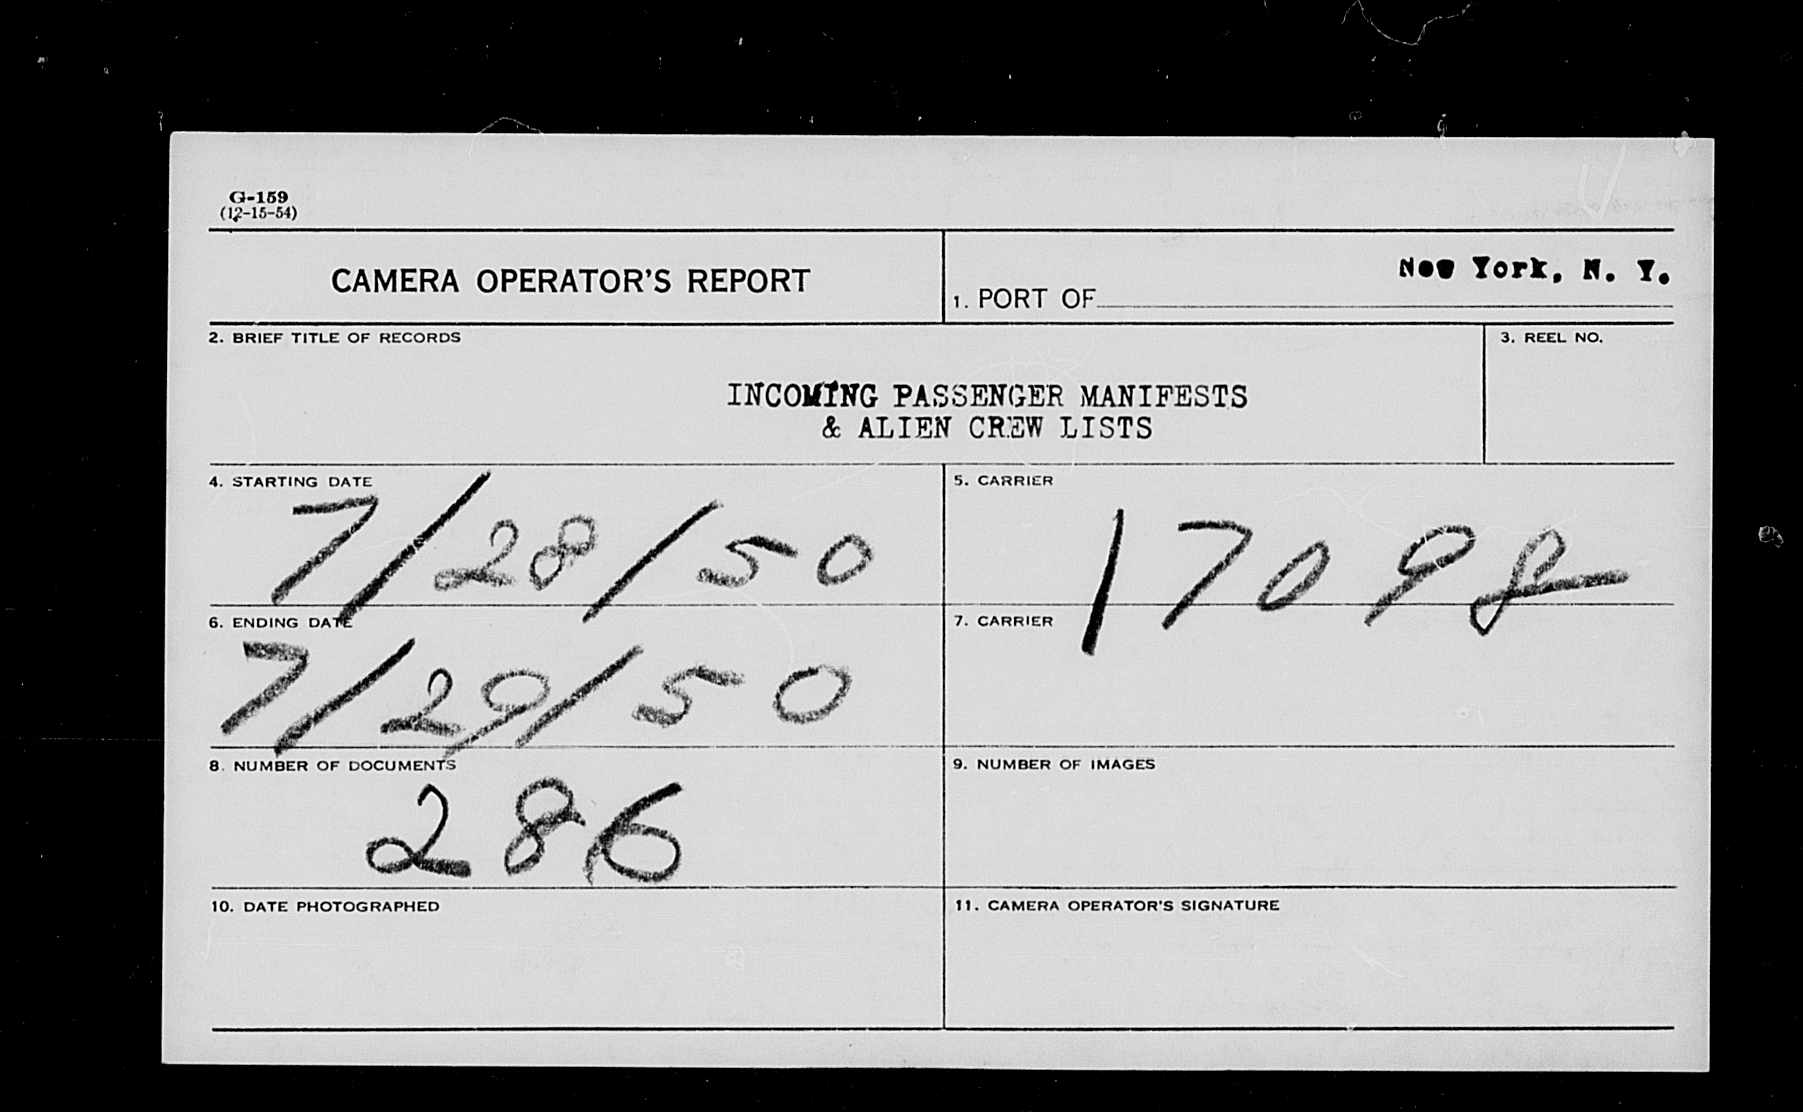 G-159
(12-15-54)
CAMERA OPERATOR'S REPORT
1. PORT OF New York, N. Y.
2. BRIEF TITLE OF RECORDS
INCOMING PASSENGER MANIFESTS
& ALIEN CREW LISTS
3. REEL NO.
4. STARTING DATE
7/28/50
5. CARRIER
17098
6. ENDING DATE
7/29/50
7. CARRIER
8. NUMBER OF DOCUMENTS
286
9. NUMBER OF IMAGES
10. DATE PHOTOGRAPHED
11. CAMERA OPERATOR'S SIGNATURE